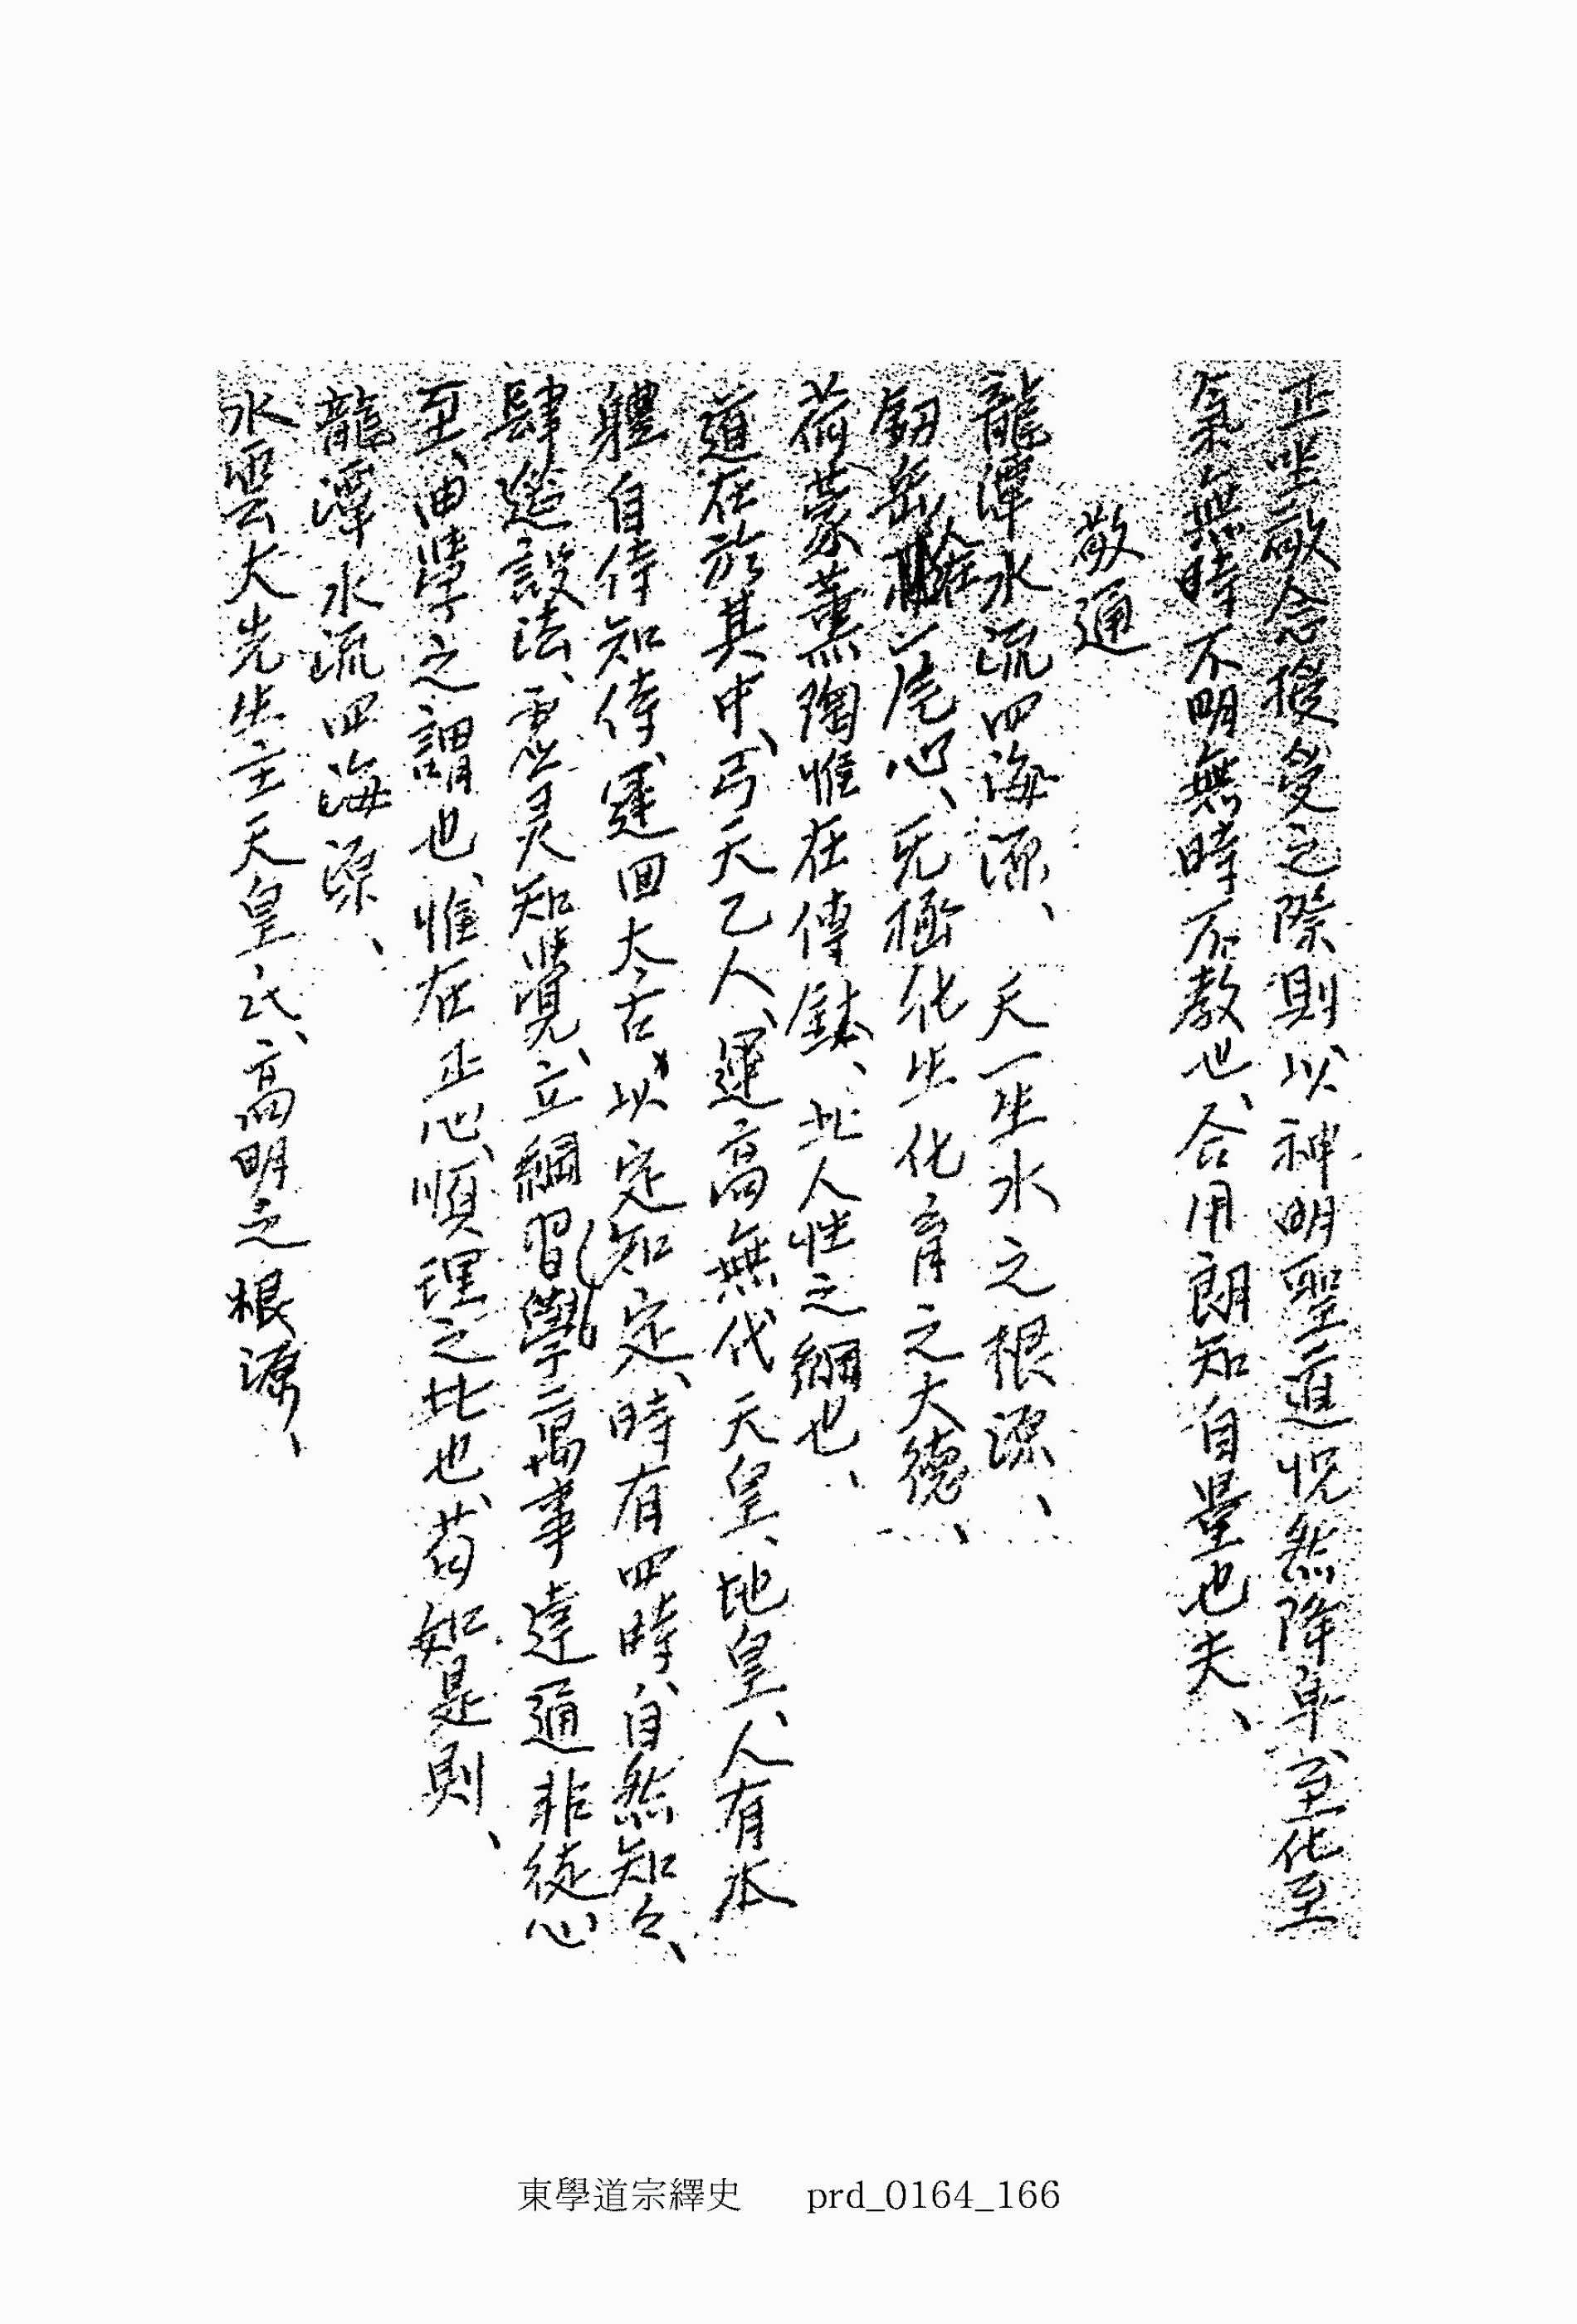 正坐敬合援受之際則以神明聖道怳然降卑室至化至
氣無時不明無時不敎也、合用朗知自量也夫、
敬通
龍潭水流四海源、 天一生水之根源、
釼岳人在一片心、无極化生化育之大德、
荷蒙薰陶惟在傳鉢、此人性之綱也、
道在於其中、弓天乙人、運高無代天皇、地皇、人有本
軆自侍知侍、運回太古、以定知定、時有四時、自然知々、
肆筵設法、虛灵知覺、立綱習學、萬事達通非徒心
至、由學之謂也、惟在正心、順理之此也、苟如是則、
龍潭水流四海源、
水雲大先生主天皇氏、高明之根源、
東學道宗繹史 prd_0164_166